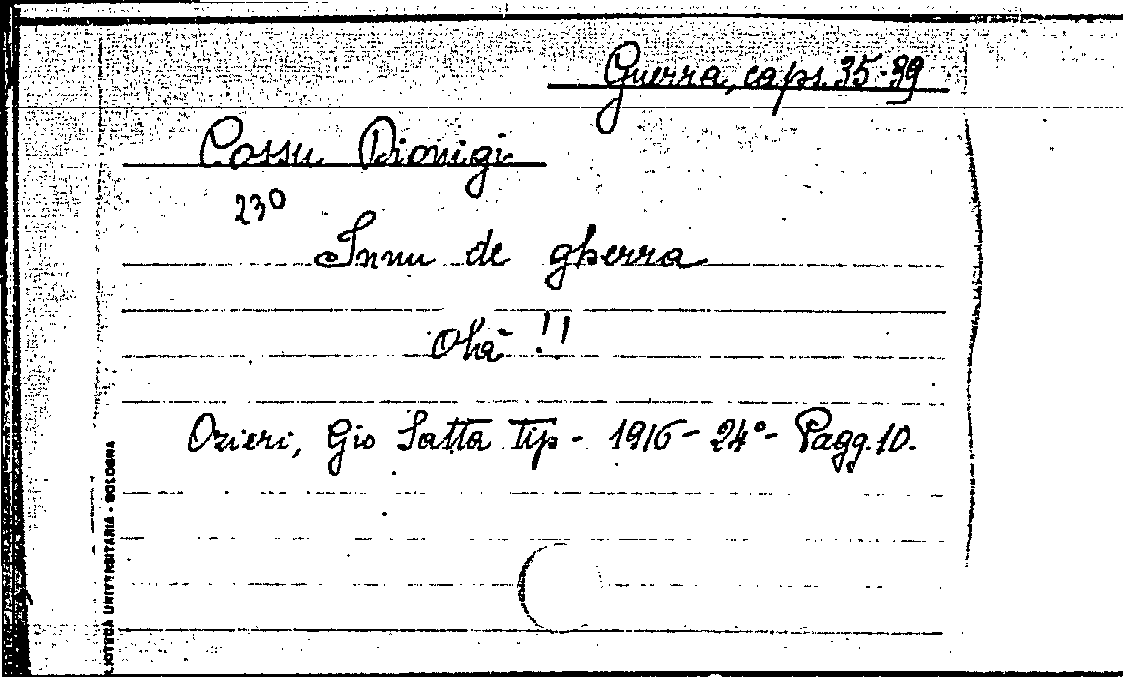 Guerra, caps. 35-39
Cossu Dionigi
230
Innu de gherra
Ohà !!
Ozieri, Gio Satta Tip - 1916 - 24° - Pagg. 10.
LIOTECA UNIVERSITARIA - BOLOGNA